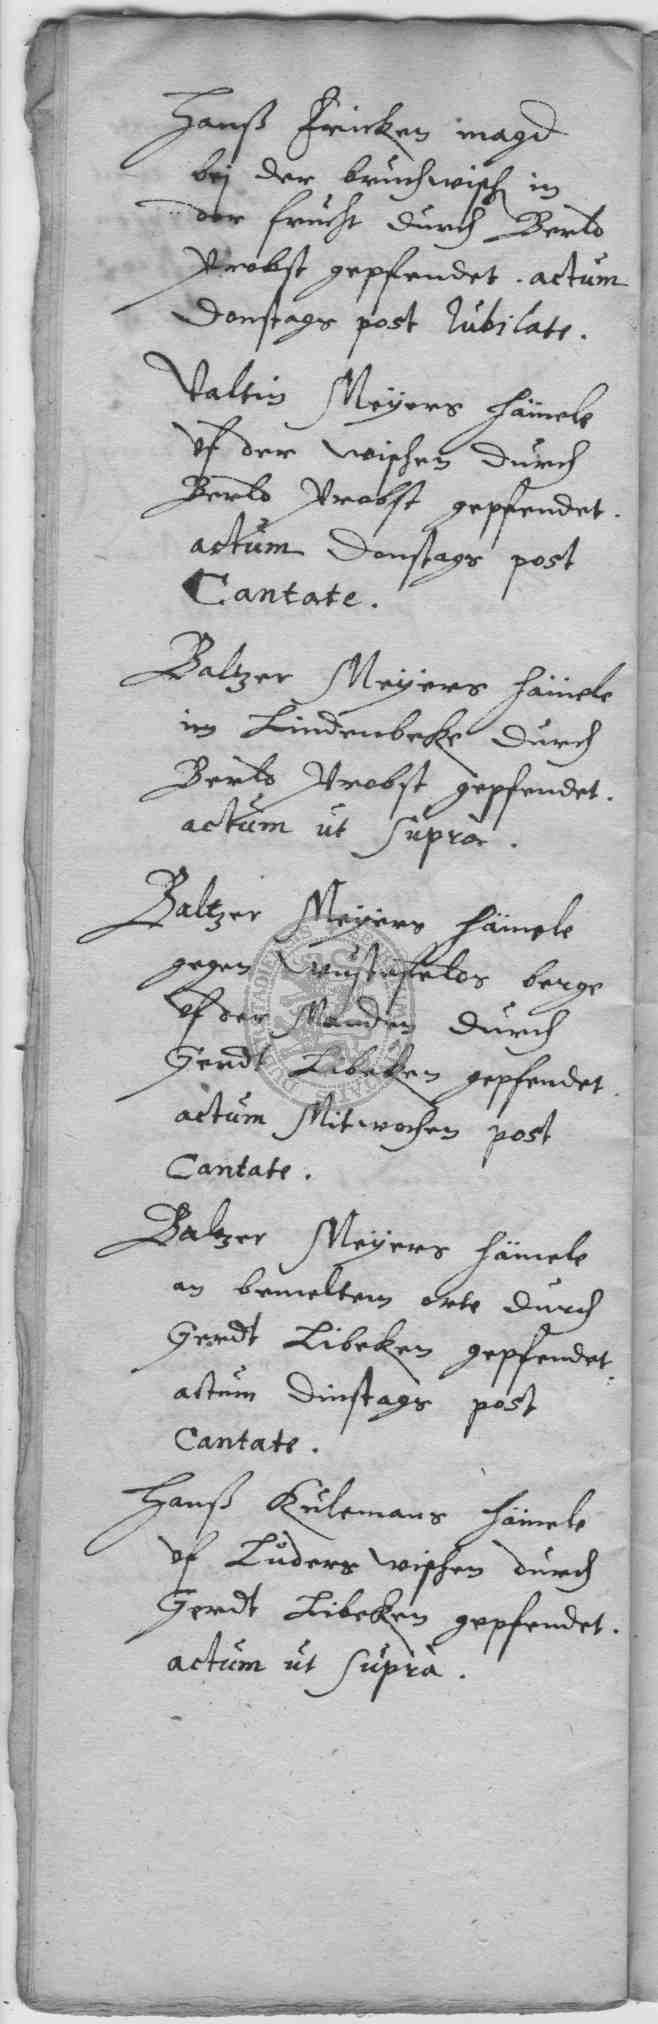 Hanß Fricken magd
bei der bruchwisch in
der frucht durch Berld
Probst gepfendet. actum
Donstags post Iubilate.
Valtin Meÿers hämele
vf der wischen durch
Berld Probst gepfendet.
actum Donstags post
Cantate.
Baltzer Meÿers hämele
im Lindenbeke durch
Berld Probst gepfendet.
actum ut supra.
Baltzer Meÿers hämele
gegen berge
vf der durch
Gerdt Libeken gepfendet.
actum Mitwochen post
Cantate.
Baltzer Meÿers hämele
an bemeltem orte durch
Gerdt Libeken gepfendet.
actum Dinstags post
Cantate.
Hanß Kulemans hämele
vf Luders wischen durch
Gerdt Libeken gepfendet.
actum ut supra.